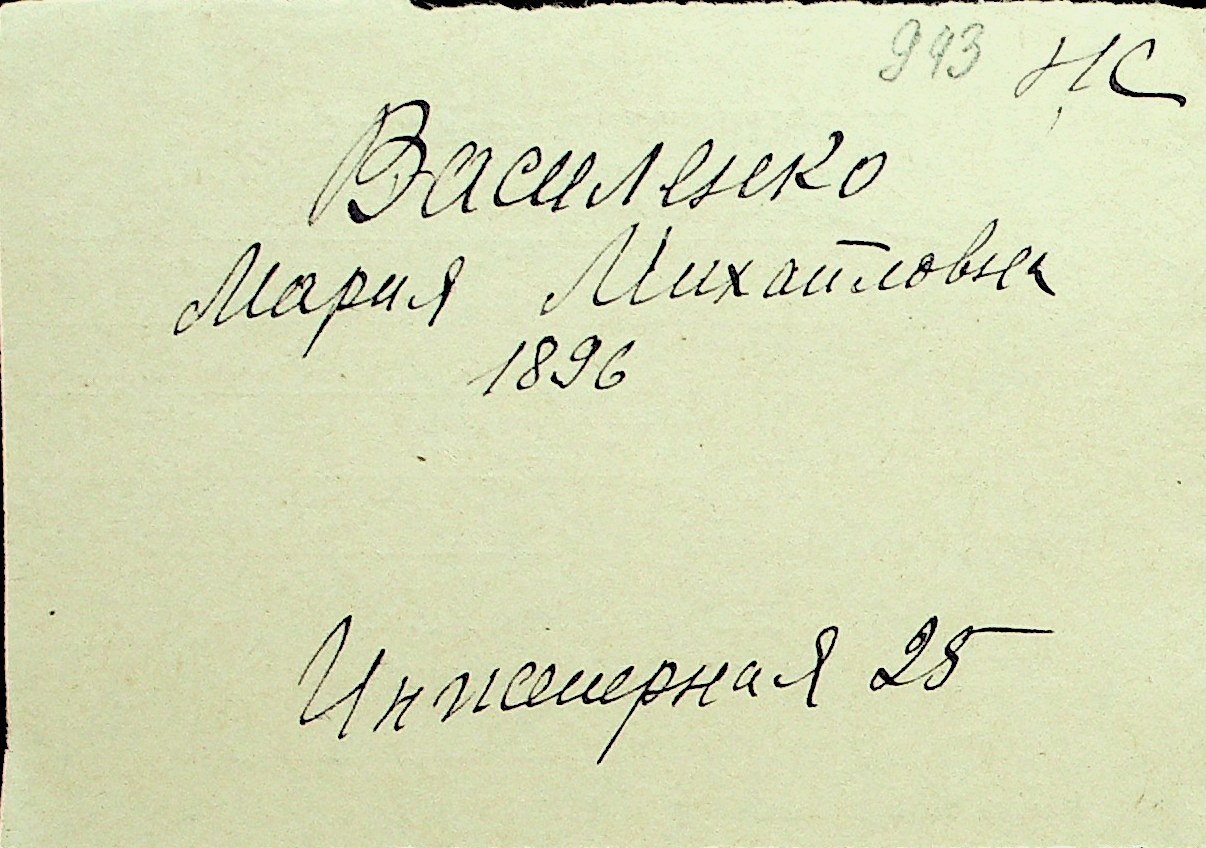 943 НС
Василенко
Мария Михайловна
1896
Инженерная 25